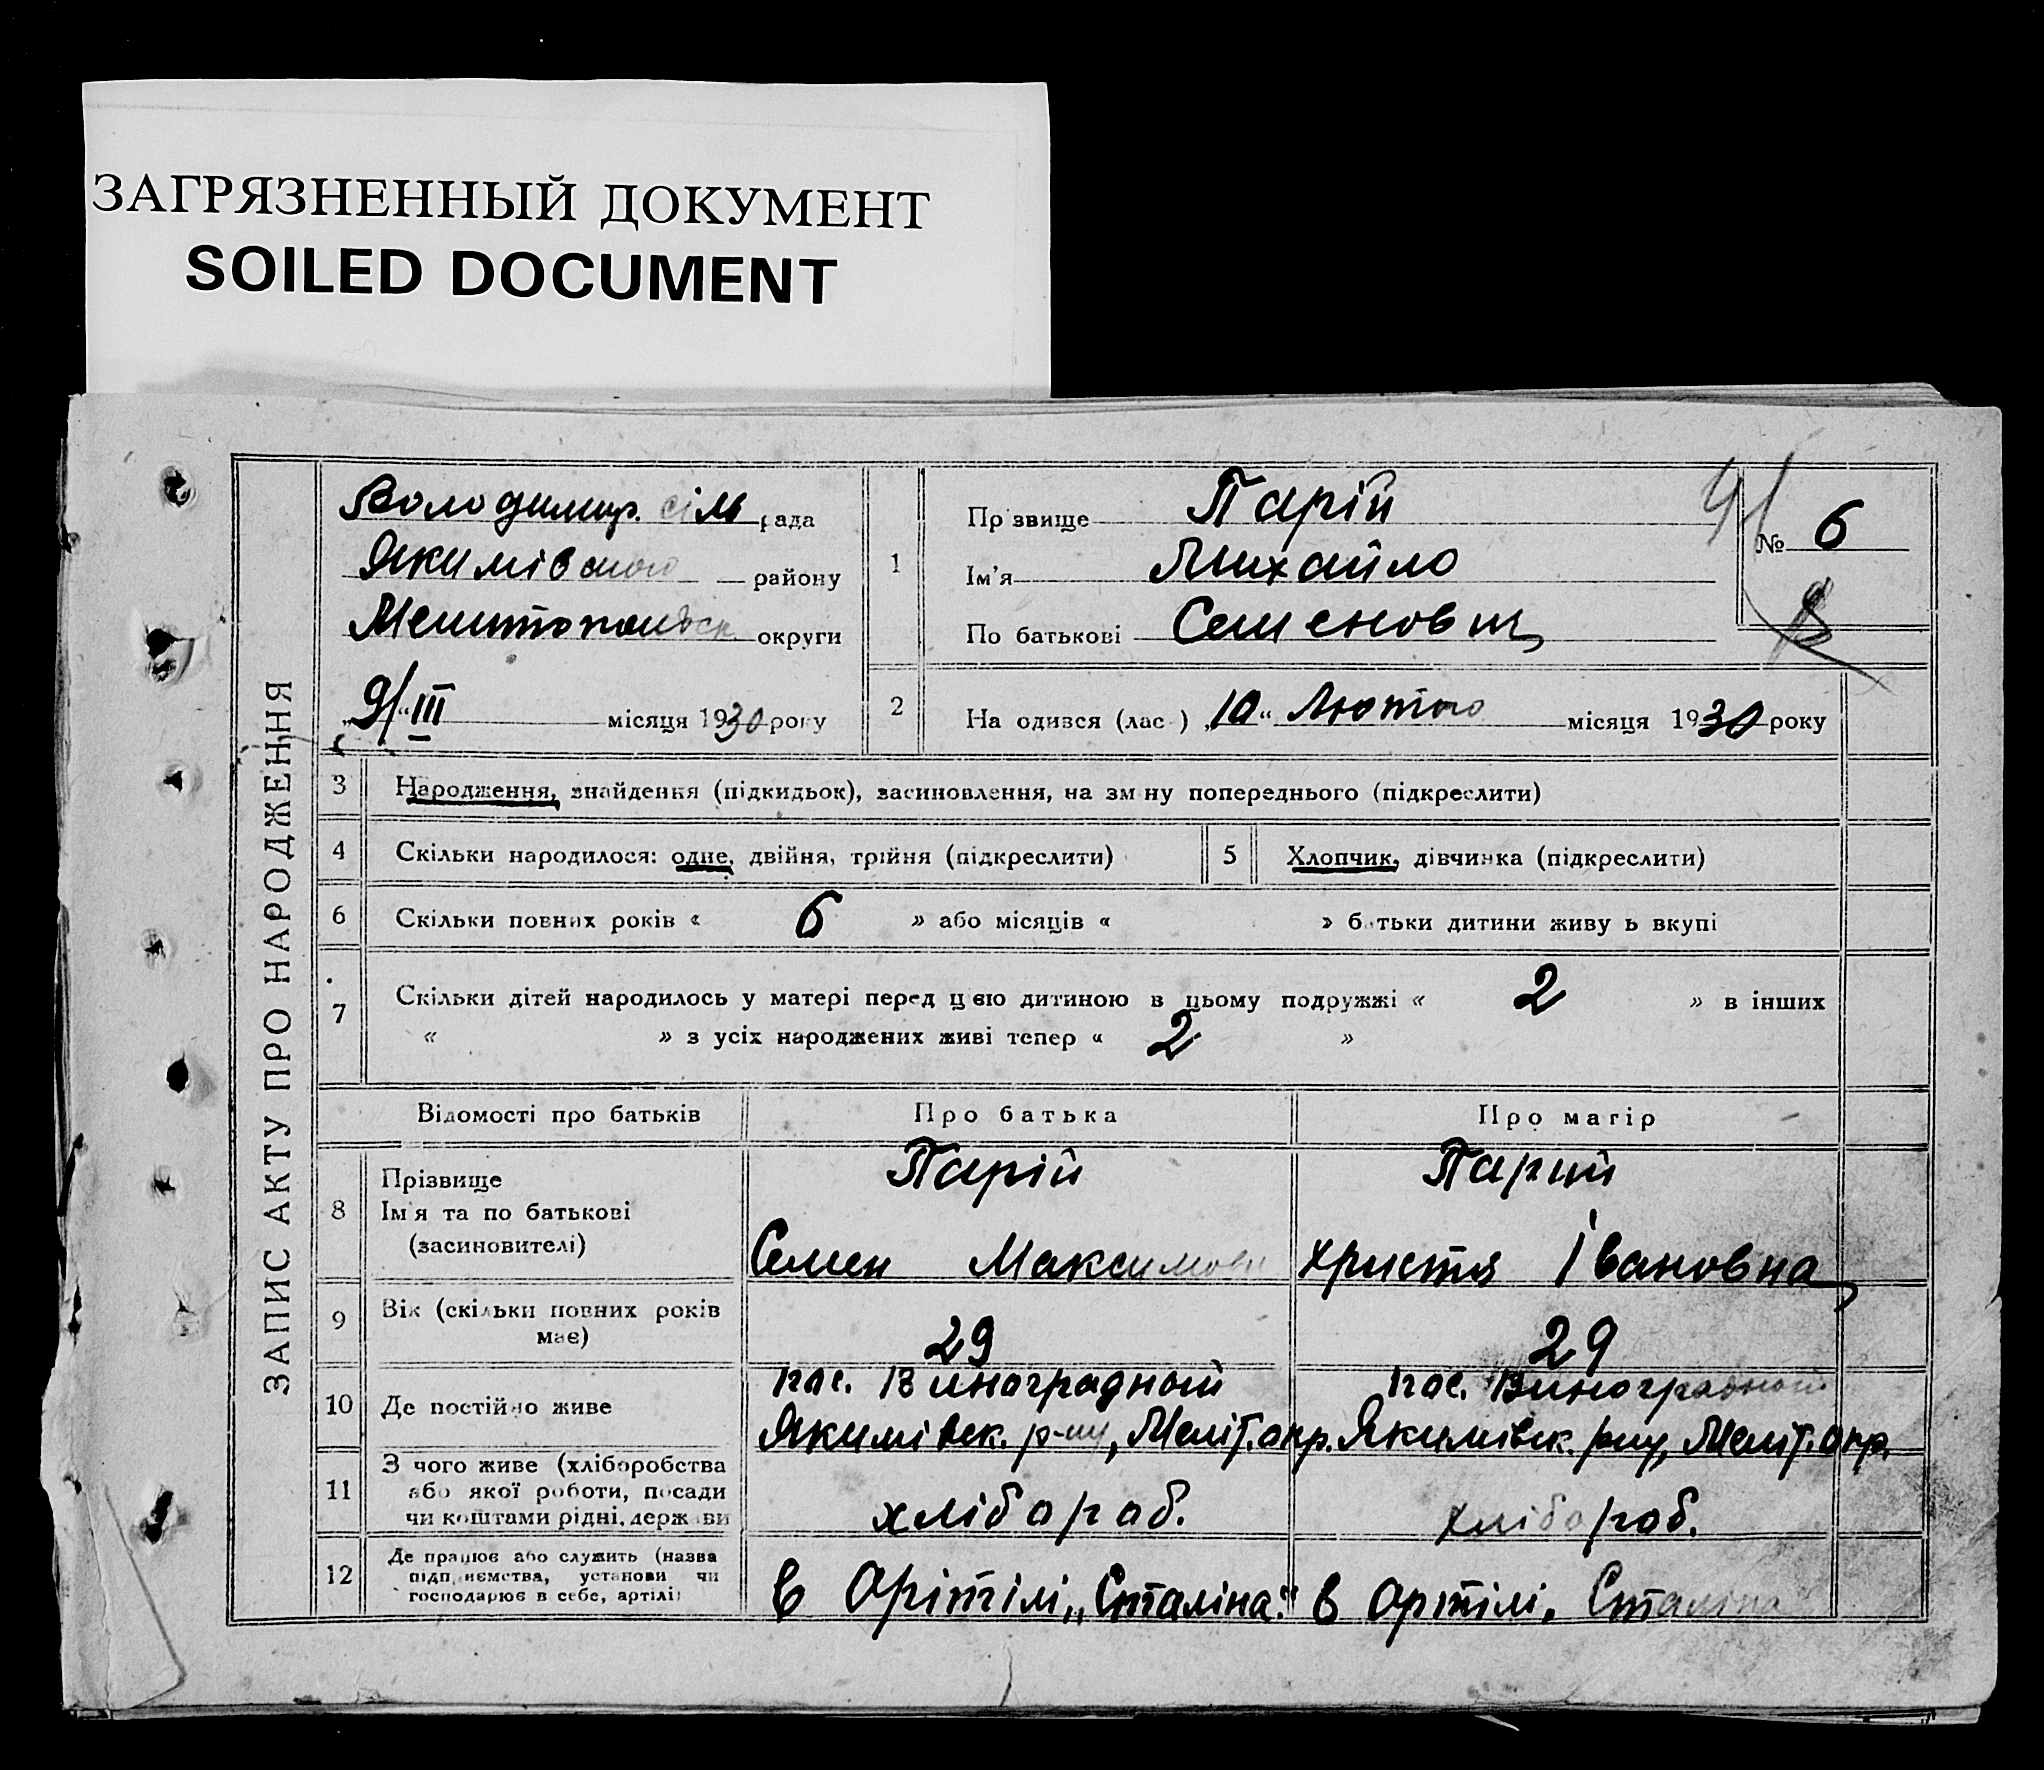 ЗАГРЯЗНЕННЫЙ ДОКУМЕНТ
SOILED DOCUMENT
ЗАПИС АКТУ ПРО НАРОДЖЕННЯ
Володимир. сіль рада
Якимівського району
Мелитопольск округи
„9/“ III місяця 1930 року
1
Пр звище Парій
Ім'я Михайло
По батькові Семенович
91
№ 6
2
На одився (лас ) „10“ Лютого місяця 1930 року
3 Народження, знайдення (підкидьок), засиновлення, на зм ну попереднього (підкреслити)
4 Скільки народилося: одне, двійня, трійня (підкреслити)
5 Хлопчик, дівчинка (підкреслити)
6 Скільки повних років « 6 » або місяців « » б тьки дитини живу ь вкупі
7 Скільки дітей народилось у матері перед цією дитиною в цьому подружжі « 2 » в інших
« » з усіх народжених живі тепер « 2 »
Відомості про батьків Про батька Про матір
8 Прізвище
Ім'я та по батькові
(засиновителі)
Парій
Семен Максимови
Парий
Христя Івановна
9 Вік (скільки повних років
має)
29
29
10 Де постійно живе
пос. Виноградном
Якимівск. р-ну, Меліт. окр.
пос. Виноградном
Якимівск. р-ну, Меліт. окр.
11 З чого живе (хліборобства
або якої роботи, посади
чи коштами рідні, держави
хлібороб.
хлібороб.
12 Де працює або служить (назва
підп иємства, установи чи
господарює в себе, артілі)
в Арітілі „Сталіна"
в Артілі „ Сталіна